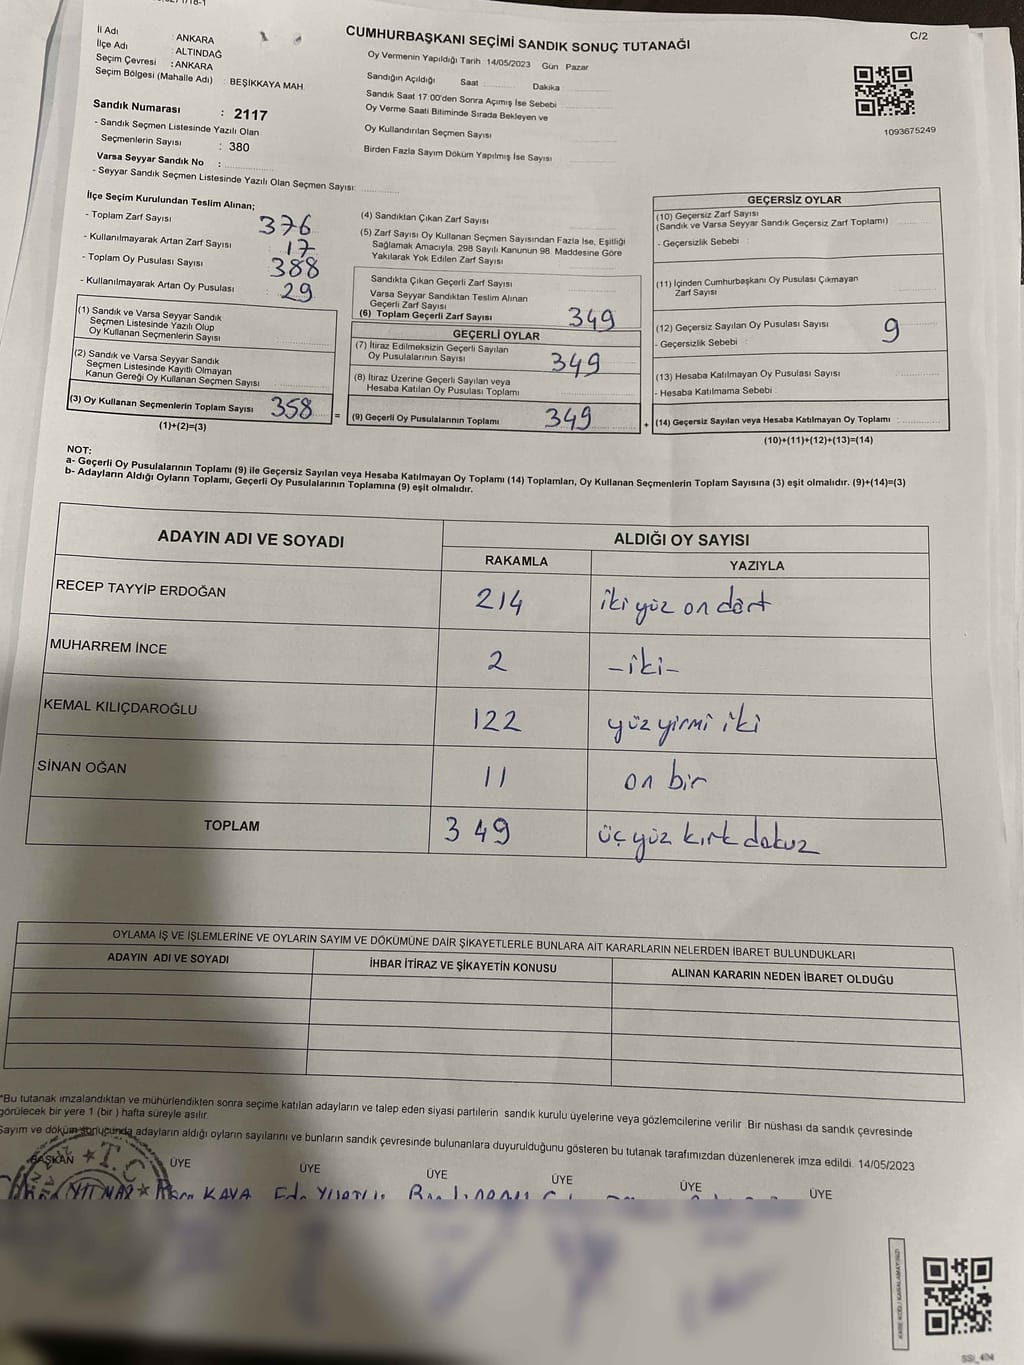 C/2
İl Adı : ANKARA
İlçe Adı : ALTINDAĞ
Seçim Çevresi : ANKARA
Seçim Bölgesi (Mahalle Adı) : BEŞİKKAYA MAH.
Sandık Numarası : 2117
- Sandık Seçmen Listesinde Yazılı Olan
Seçmenlerin Sayısı : 380
Varsa Seyyar Sandık No :
- Seyyar Sandık Seçmen Listesinde Yazılı Olan Seçmen Sayısı:
CUMHURBAŞKANI SEÇİMİ SANDIK SONUÇ TUTANAĞI
Oy Vermenin Yapıldığı Tarih 14/05/2023 Gün Pazar
Sandığın Açıldığı Saat Dakika
Sandık Saat 17:00'den Sonra Açımış İse Sebebi
Oy Verme Saati Bitiminde Sırada Bekleyen ve
Oy Kullandırılan Seçmen Sayısı
Birden Fazla Sayım Döküm Yapılmış İse Sayısı
1093675249
İlçe Seçim Kurulundan Teslim Alınan;
- Toplam Zarf Sayısı 376
- Kullanılmayarak Artan Zarf Sayısı 17
- Toplam Oy Pusulası Sayısı 388
- Kullanılmayarak Artan Oy Pusulası : 29
(1) Sandık ve Varsa Seyyar Sandık
Seçmen Listesinde Yazılı Olup
Oy Kullanan Seçmenlerin Sayısı
(2) Sandık ve Varsa Seyyar Sandık
Seçmen Listesinde Kayıtlı Olmayan
Kanun Gereği Oy Kullanan Seçmen Sayısı
(3) Oy Kullanan Seçmenlerin Toplam Sayısı 358
(1)+(2)=(3)
(4) Sandıktan Çıkan Zarf Sayısı
(5) Zarf Sayısı Oy Kullanan Seçmen Sayısından Fazla İse, Eşitliği
Sağlamak Amacıyla, 298 Sayılı Kanunun 98. Maddesine Göre
Yakılarak Yok Edilen Zarf Sayısı
Sandıkta Çıkan Geçerli Zarf Sayısı
Varsa Seyyar Sandıktan Teslim Alınan
Geçerli Zarf Sayısı
(6) Toplam Geçerli Zarf Sayısı 349
GEÇERLİ OYLAR
(7) İtiraz Edilmeksizin Geçerli Sayılan
Oy Pusulalarının Sayısı 349
(8) İtiraz Üzerine Geçerli Sayılan veya
Hesaba Katılan Oy Pusulası Toplamı
= (9) Geçerli Oy Pusulalarının Toplamı 349
GEÇERSİZ OYLAR
(10) Geçersiz Zarf Sayısı
(Sandık ve Varsa Seyyar Sandık Geçersiz Zarf Toplamı)
- Geçersizlik Sebebi :
(11) İçinden Cumhurbaşkanı Oy Pusulası Çıkmayan
Zarf Sayısı
(12) Geçersiz Sayılan Oy Pusulası Sayısı 9
- Geçersizlik Sebebi :
(13) Hesaba Katılmayan Oy Pusulası Sayısı
- Hesaba Katılmama Sebebi :
+ (14) Geçersiz Sayılan veya Hesaba Katılmayan Oy Toplamı
(10)+(11)+(12)+(13)=(14)
NOT:
a- Geçerli Oy Pusulalarının Toplamı (9) ile Geçersiz Sayılan veya Hesaba Katılmayan Oy Toplamı (14) Toplamları, Oy Kullanan Seçmenlerin Toplam Sayısına (3) eşit olmalıdır. (9)+(14)=(3)
b- Adayların Aldığı Oyların Toplamı, Geçerli Oy Pusulalarının Toplamına (9) eşit olmalıdır.
ADAYIN ADI VE SOYADI ALDIĞI OY SAYISI
RAKAMLA YAZIYLA
RECEP TAYYİP ERDOĞAN 214 iki yüz on dört
MUHARREM İNCE 2 -iki-
KEMAL KILIÇDAROĞLU 122 yüz yirmi iki
SİNAN OĞAN 11 on bir
TOPLAM 349 üç yüz kırk dokuz
OYLAMA İŞ VE İŞLEMLERİNE VE OYLARIN SAYIM VE DÖKÜMÜNE DAİR ŞİKAYETLERLE BUNLARA AİT KARARLARIN NELERDEN İBARET BULUNDUKLARI
ADAYIN ADI VE SOYADI İHBAR İTİRAZ VE ŞİKAYETİN KONUSU ALINAN KARARIN NEDEN İBARET OLDUĞU
*Bu tutanak imzalandıktan ve mühürlendikten sonra seçime katılan adayların ve talep eden siyasi partilerin sandık kurulu üyelerine veya gözlemcilerine verilir. Bir nüshası da sandık çevresinde
görülecek bir yere 1 (bir ) hafta süreyle asılır.
Sayım ve döküm sonucunda adayların aldığı oyların sayılarını ve bunların sandık çevresinde bulunanlara duyurulduğunu gösteren bu tutanak tarafımızdan düzenlenerek imza edildi. 14/05/2023
BAŞKAN ÜYE ÜYE ÜYE ÜYE ÜYE ÜYE
T.C.
KAYA
SSI_404